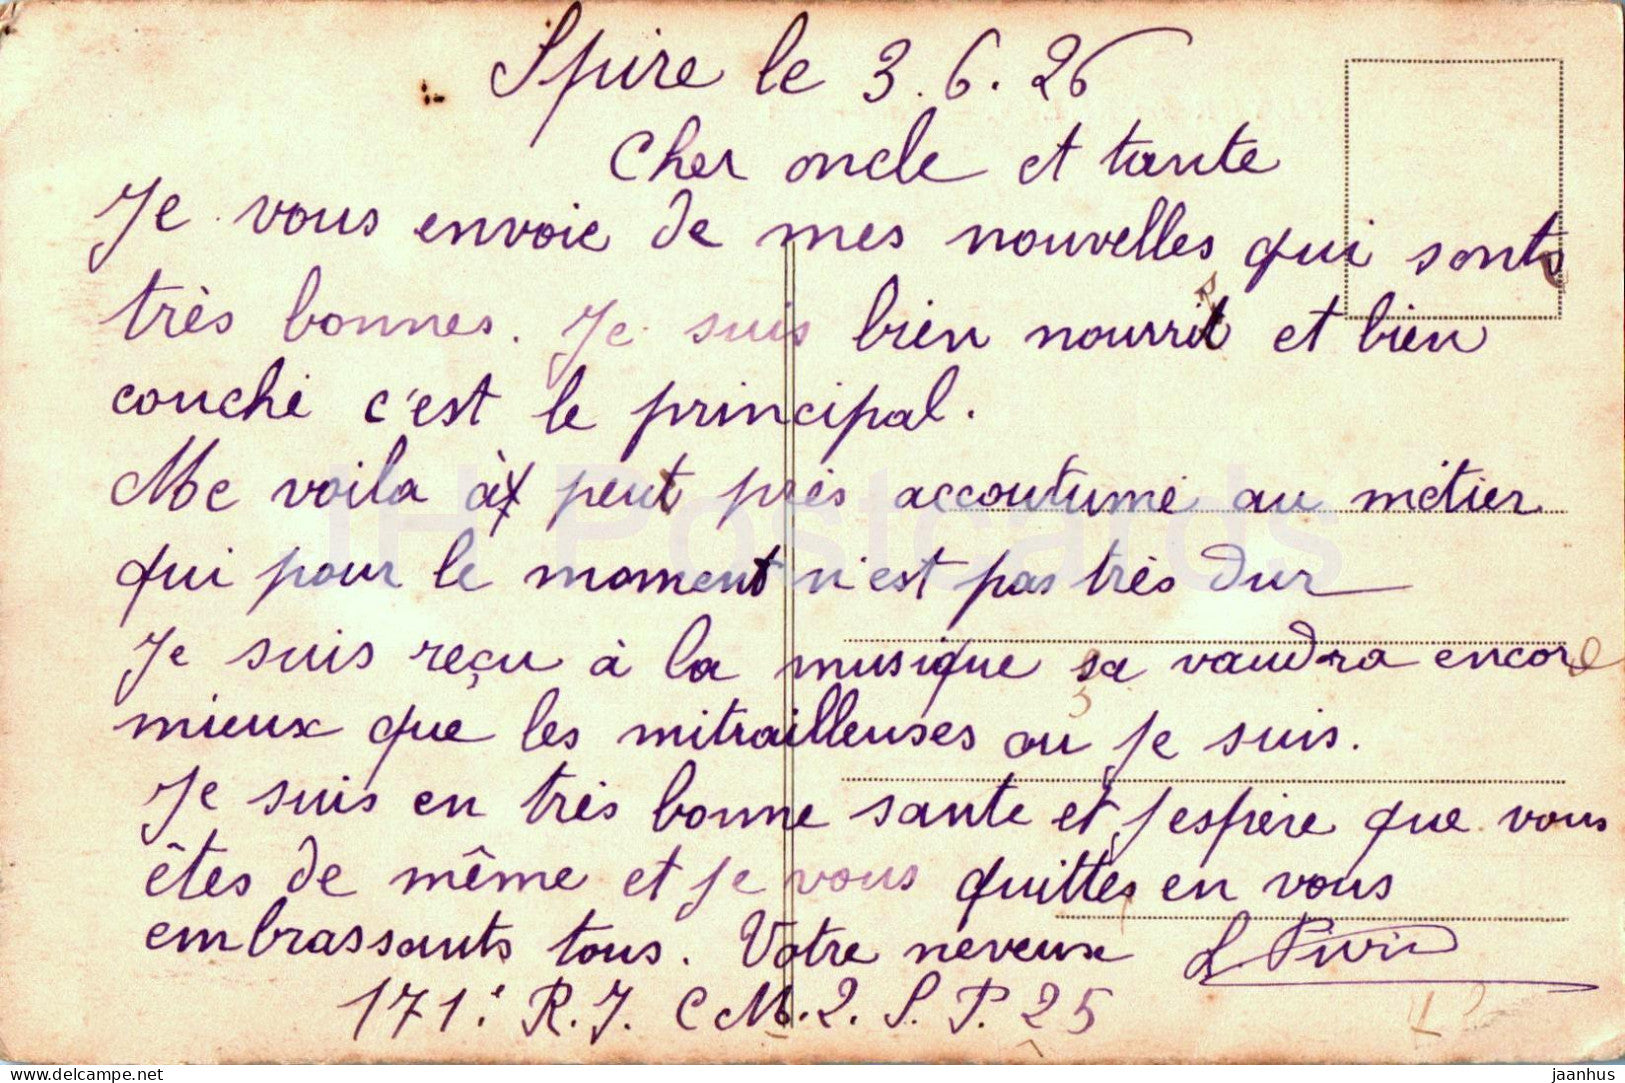 Spire le 3.6.26
Cher oncle et tante
Je vous envoie de mes nouvelles qui sonts
très bonnes. Je suis bien nourrit et bien
couché c'est le principal.
Me voila à peut près accoutumé au métier
qui pour le moment n'est pas très dur
Je suis reçu à la musique sa vaudra encore
mieux que les mitrailleuses ou je suis.
Je suis en très bonne santé et j'espère que vous
êtes de même et je vous quittes en vous
embrassants tous. Votre neveux L.
171.e R.J. C M.2. S.P. 25
JH Postcards
delcampe.net
jaanhus